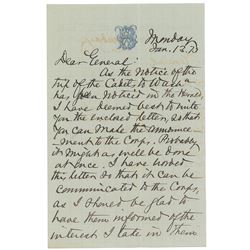 Monday
Jan. 12.
Dear General:
As the Notice of the
trip of the Cadets to
has been Noticed in the Herald,
I have deemed best to write
you the enclosed letter, so that
you can make the announce-
ment to the Corps. Probably
it might as well be done
at once. I have worded
this letter so that it can be
communicated to the Corps,
as I should be glad to
have them informed of the
interest I take in them